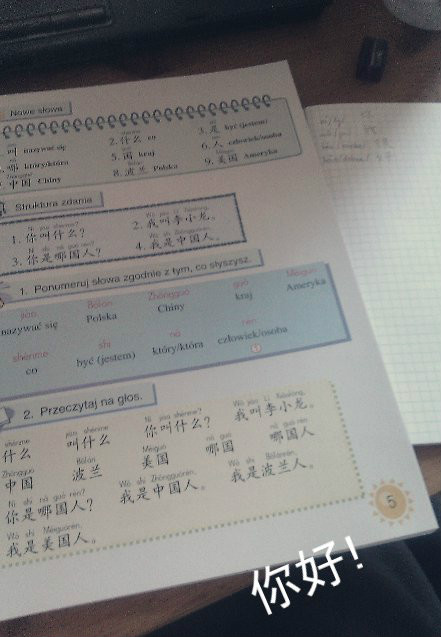 Nowe słowa
jiào 叫 nazywać się
shénme 2. 什么 co
shì 3. 是 być (jestem)
nǎ 哪 który/która
guó 5. 国 kraj
rén 6. 人 człowiek/osoba
Zhōngguó 中国 Chiny
Bōlán 8. 波兰 Polska
Měiguó 9. 美国 Ameryka
Struktura zdania
Nǐ jiào shénme?
1. 你叫什么?
Wǒ jiào Lǐ Xiǎolóng.
2. 我叫李小龙。
Nǐ shì nǎ guó rén?
3. 你是哪国人?
Wǒ shì Zhōngguórén.
4. 我是中国人。
1. Ponumeruj słowa zgodnie z tym, co słyszysz.
jiào Bōlán Zhōngguó guó Měiguó
nazywać się Polska Chiny kraj Ameryka
shénme shì nǎ rén
co być (jestem) który/która człowiek/osoba
2. Przeczytaj na głos.
shénme jiào shénme Nǐ jiào shénme? Wǒ jiào Lǐ Xiǎolóng.
什么 叫什么 你叫什么? 我叫李小龙。
Zhōngguó Bōlán Měiguó nǎ guó nǎ guó rén
中国 波兰 美国 哪国 哪国人
Nǐ shì nǎ guó rén? Wǒ shì Zhōngguórén. Wǒ shì Bōlánrén.
你是哪国人? 我是中国人。 我是波兰人。
Wǒ shì Měiguórén.
我是美国人。
5
你好!